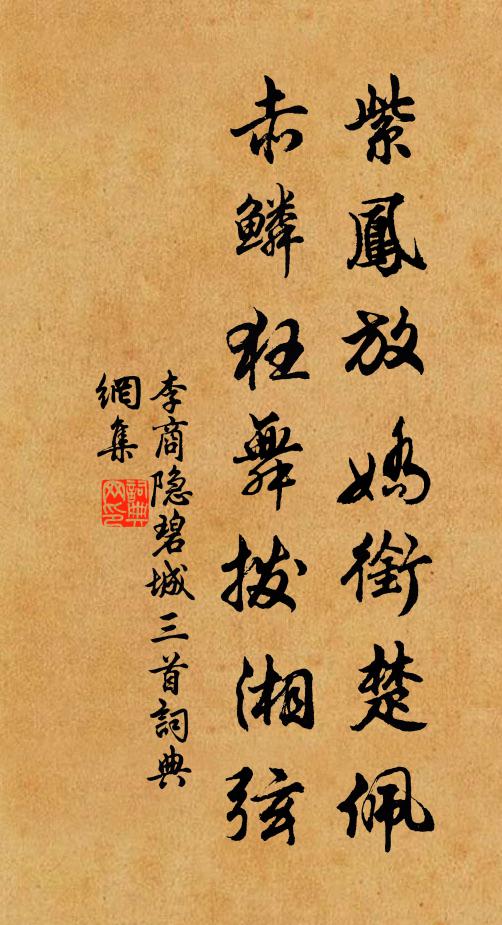 紫鳳放嬌銜楚佩
赤鱗狂舞撥湘弦
李商隐碧城三首詞典
網集
詞典
网印